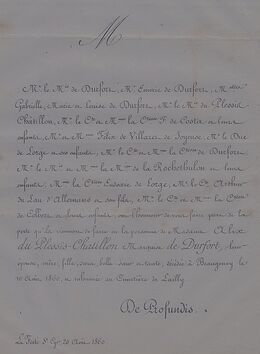 M
Mr. le Mis de Durfort, Mr. Emeric de Durfort, Melles
Gabrielle, Marie et Louise de Durfort, Mr. le Mis du Plessis
Châtillon, Mr. le Cte et Mme la Ctesse F. de Costa et leurs
enfants, Mr. et Mme Félix de Villars de Joyeuse, Mr. le Duc
de Lorge et ses enfants, Mr. le Cte et Mme la Ctesse de Durfort
Mr. le Mis et Mme la Mise de la Rochethulon et leurs
enfants, Mme la Ctesse de Lorge, Mr. le Cte Arthur
de Lau d'Allemans et son fils, Mr. le Cte et Mme la Ctesse
de et leurs enfants, ont l'honneur de vous faire part de la
perte qu'ils viennent de faire en la personne de Madame Alix
du Plessis-Châtillon Marquise de Durfort, leur
épouse, mère, fille, sœur, belle-sœur et tante, décédée à Beaugency le
Août 1860, et inhumée au Cimetière de Lailly.
De Profundis.
La Ferté St. Cyr, 20 Août 1860